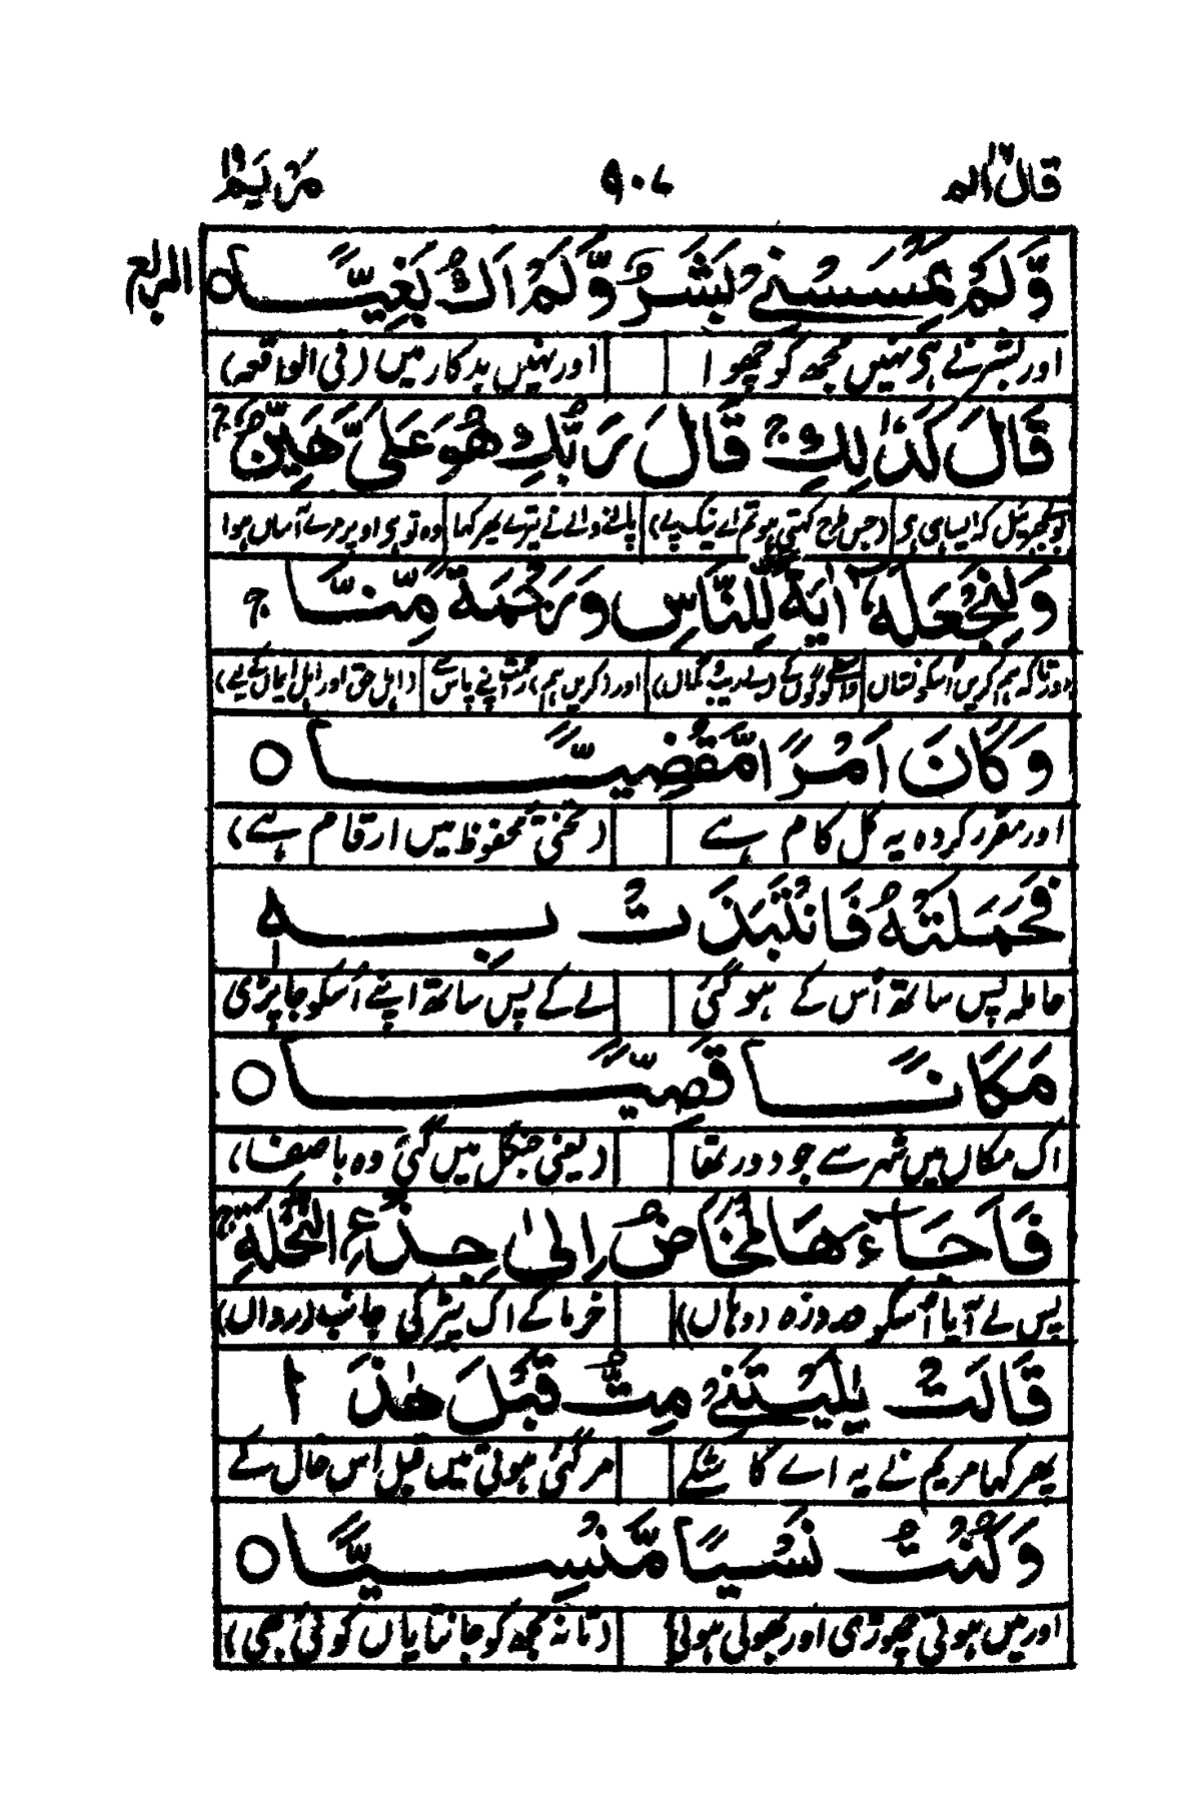 قال الم ۱۶ ۹۰۷ مریم ۱۹
الربع
وَّلَمْ يَمْسَسْنِيْ بَشَرٌ وَّلَمْ اَكُ بَغِيًّا ○
اور بشر نے ہی نہیں مجھ کو چھوا اور نہیں بدکار میں (فی الواقعہ)
قَالَ كَذٰلِكِ ۚ قَالَ رَبُّكِ هُوَ عَلَيَّ هَيِّنٌ ۚ
کہ ایسا ہی ہی (جس طرح کہتی ہو تم اے نیک پے) پالنے والے نے تیرے پھر کہا وہ تو ہی اوپر مرے آساں ہوا
وَلِنَجْعَلَهٗٓ اٰيَةً لِّلنَّاسِ وَرَحْمَةً مِّنَّا ۚ
(اور تا کہ ہم کریں اُسکو نشاں واسطے لوگوں کے (بے ریب و گماں) اور (کریں ہم) رحمت اپنے پاس سے (اہل حق اور اہل ایماں کے لیے)
وَكَانَ اَمْرًا مَّقْضِيًّا ○
اور مقرر کردہ یہ کل کام ہے (تختی محفوظ میں ارقام ہے)
فَحَمَلَتْهُ فَانْتَبَذَتْ بِهٖ
حاملہ پس ساتھ اُس کے ہو گئی لے کے پس ساتھ اپنے اُسکو جا پڑی
مَكَانًا قَصِيًّا ○
اک مکاں میں شہر سے جو دور تھا (یعنی جنگل میں گئی وہ باصفا)
فَاَجَآءَهَا الْمَخَاضُ اِلٰى جِذْعِ النَّخْلَةِ ۚ
پس لے آیا اُسکو دردزہ (وہاں) خرما کے اک پیڑ کی جانب (رواں)
قَالَتْ يٰلَيْتَنِيْ مِتُّ قَبْلَ هٰذَا
پھر کہا مریم نے یہ اے کاشکے مر گئی ہوتی میں قبل اس حال کے
وَكُنْتُ نَسْيًا مَّنْسِيًّا ○
اور میں ہوتی چھوڑی اور بھولی ہوئی (تا نہ مجھ کو جانتا یاں کوئی بھی)